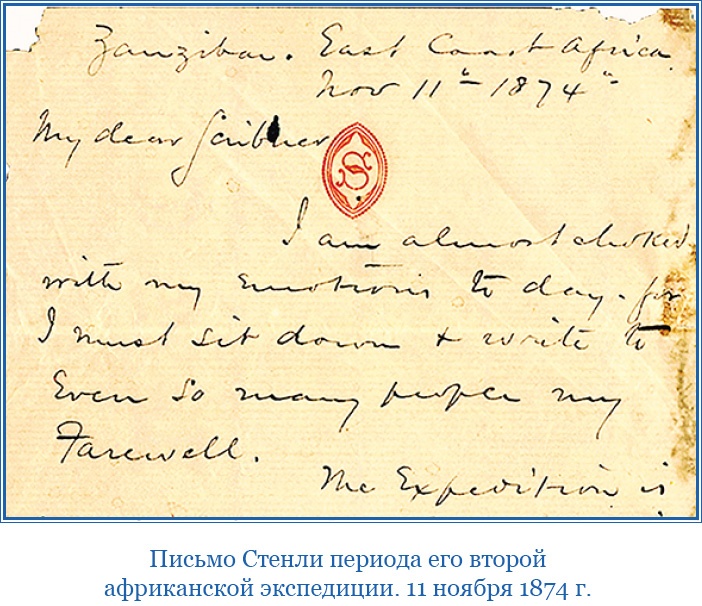 Zanzibar. East Coast Africa
Nov 11" 1874"
My dear Scribner
S
I am almost choked
with my emotions to day. for
I must sit down + write to
Ever so many people my
Farewell.
The Expedition is
Письмо Стенли периода его второй
африканской экспедиции. 11 ноября 1874 г.